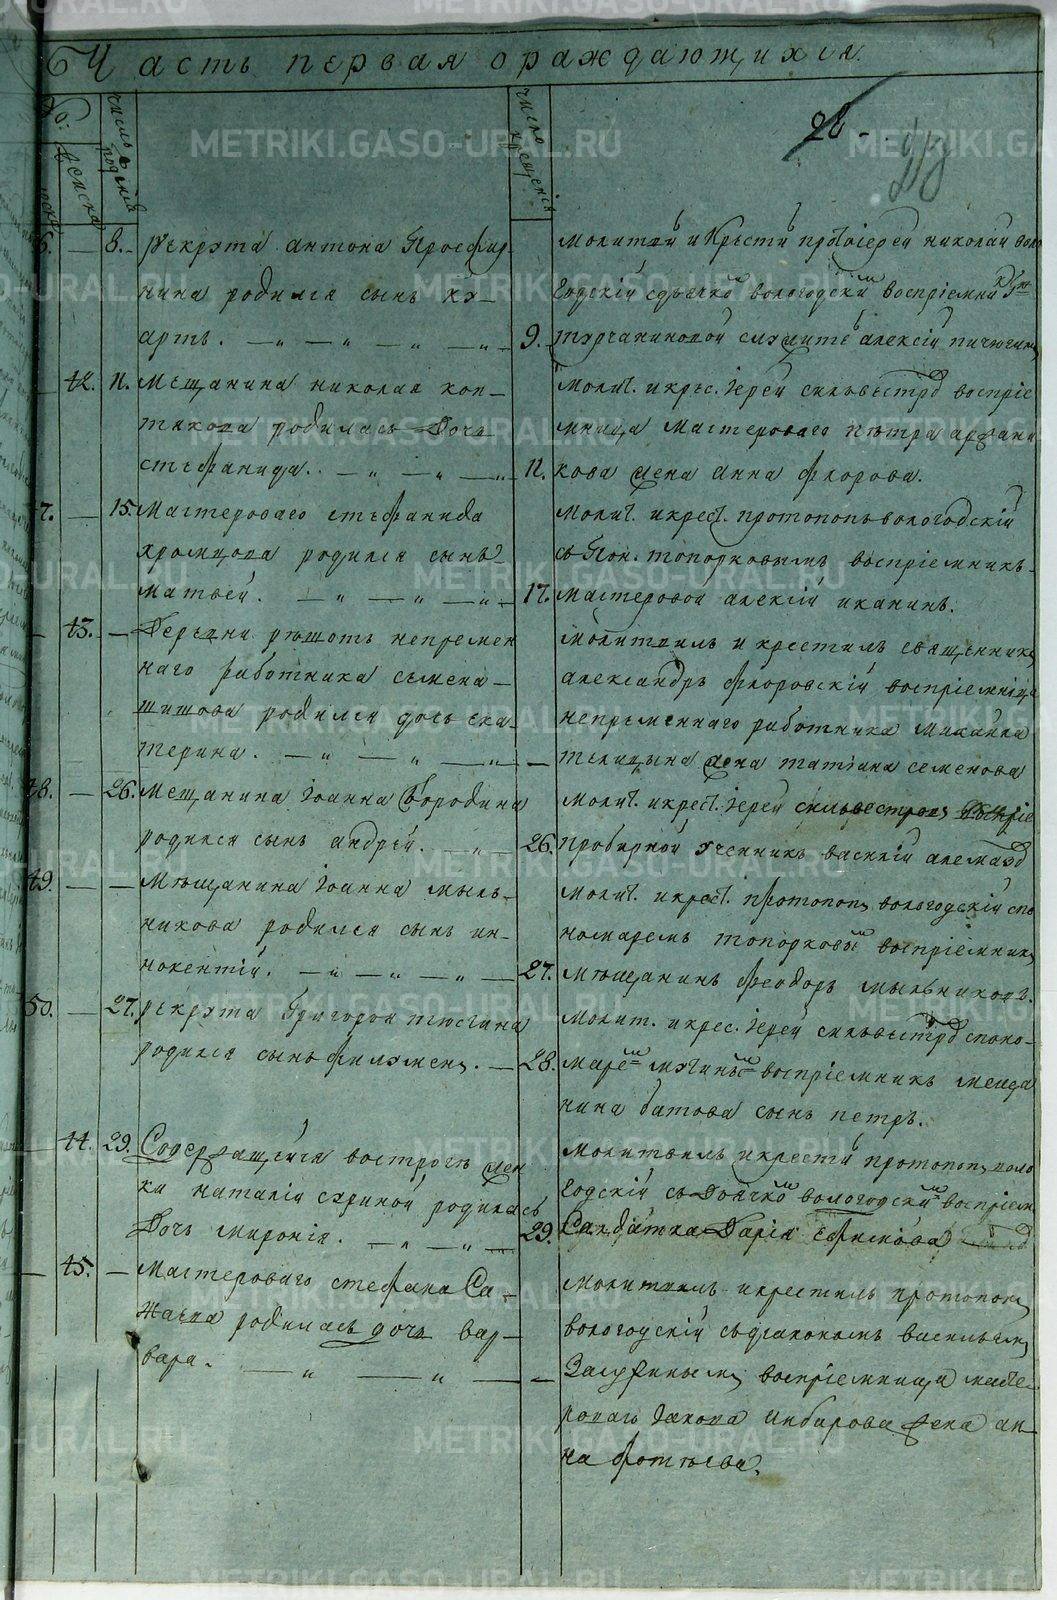 Часть первая ораждающихся.
мускa
женска
число рождения
число крещения
28
46. — 8. рекрута антона Просфир-
нина родился сынъ ку-
арть.
9.
молит. и Крести протоіерей николай воло
годскій сдьячко вологодски воспріемни
турчаниновой служитель алексій пичюгинъ
42. 11. Мещанина николая коп-
тякова родилась Дочь
стефанида.
11.
молит. и крес. іерей силвестръ воспріе
мница мастероваго петра
кова жена анна флорова.
47. — 15. Мастероваго стефанида
хромцова родился сынъ
матвей.
17.
молит. и крест. протопопъ вологодскій
съ Пон. топорковымъ воспріемникъ
мастеровой алексій иканинъ.
— 43. — Деревни решотъ непремен
наго работника семена
шишова родился дочь ека
терина.
—
молитвилъ и крестилъ священникъ
александръ флоровскій воспріемница
непременнаго работника михаила
телицына жена татіана семенова
48. — 26. Мещанина Іоанна Бородина
родился сынъ андрей.
26.
молит. и крест. іерей силвестровъ воспріе
пробирной ученникъ василій
49. — — Мещанина Іоанна мыль-
никова родился сынъ ин-
нокентій.
27.
молит. и крест. протопопъ вологодскій спо
номаремъ топорковы воспріемникъ
мещанинъ феодоръ мыльниковъ.
50. — 27. рекрута Григорья тюсина
родился сынъ филимонъ.
28.
молит. и крес. іерей силвестръ споно-
маре мягинъ воспріемникъ меща
нина батова сынъ петръ.
— 44. 29. Содержащейся вострогъ жен
ки наталіи сединой родилась
Дочь миронія.
29.
молитвилъ и крести протопопъ воло
годскій съ Дьячко вологодски воспріем
Салдатка Дарія ефимова
— 45. — Мастероваго стефана Са-
жаева родилась дочь вар-
вара.
—
молитвилъ и крестилъ протопопъ
вологодскій сдіакономъ василіемъ
воспріемница масте
роваго Іакова инбирова жена ан
на фотіева.